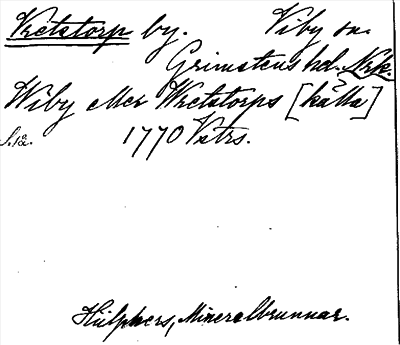 Vretstorp by. Viby sn.
Grimstens hd. Nrk.
Wiby eller Wretstorps [källa]
s. å. 1770 Vstrs.
Hülphers, Mineralbrunnar.